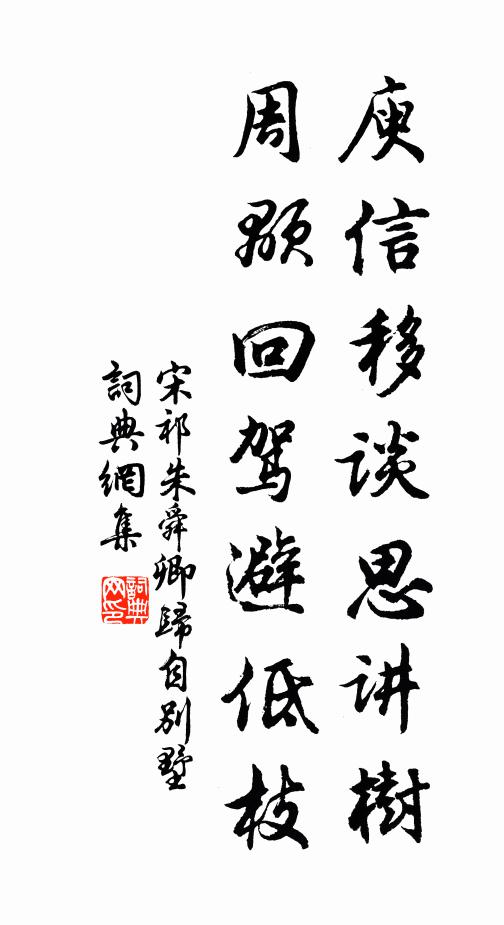 庾信移谈思讲樹
周顒回驾避低枝
宋祁朱舜卿歸自別墅
詞典網集
詞典
网印